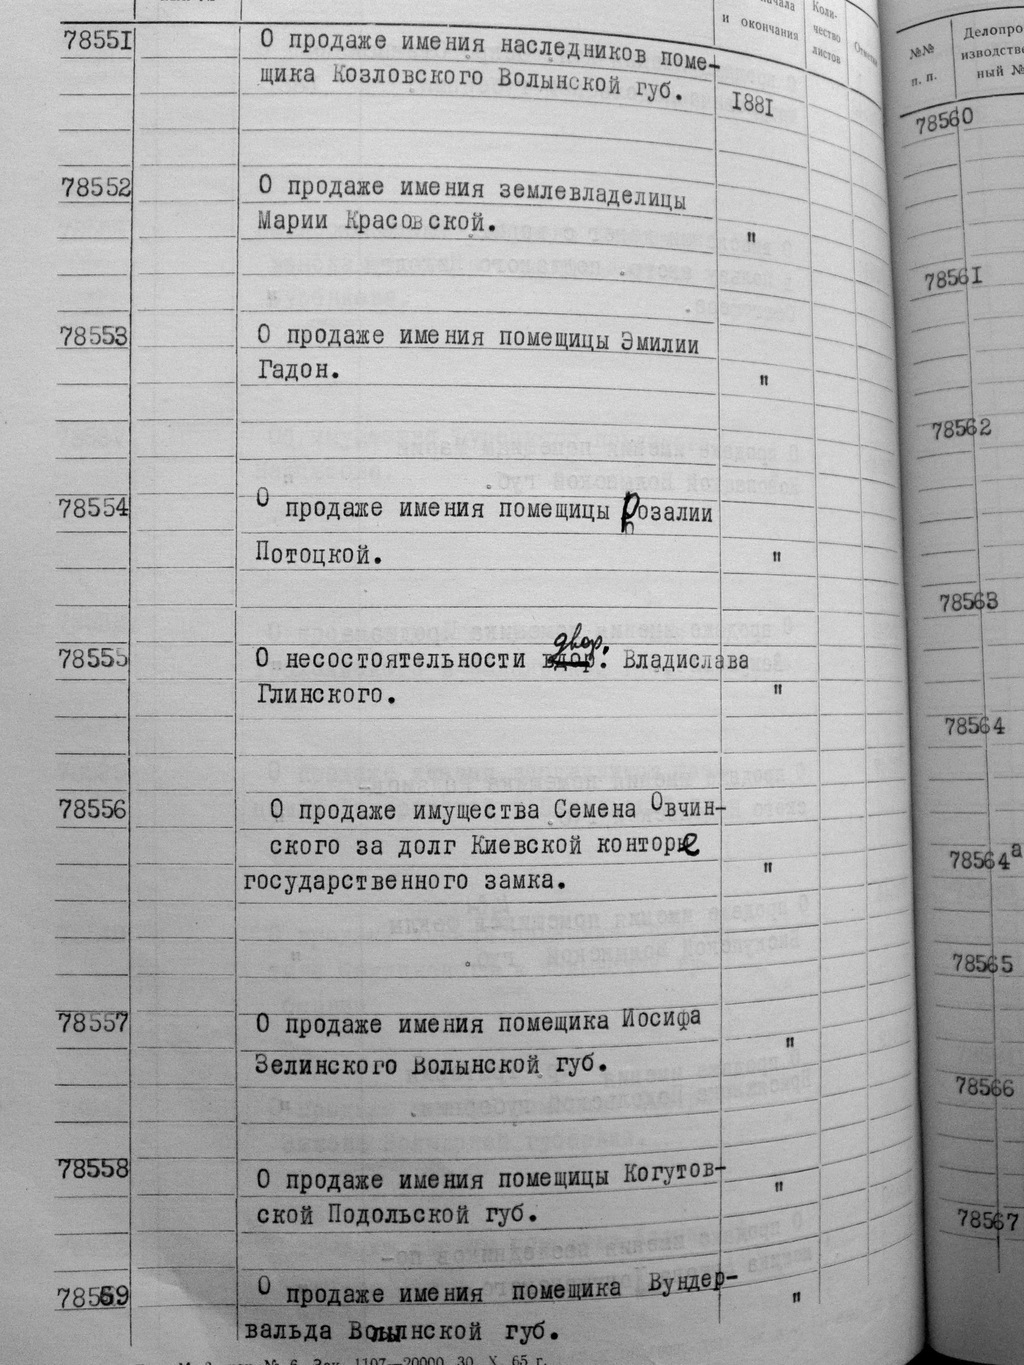 и окончания
Коли-
чество
листов
78551 О продаже имения наследников поме-
щика Козловского Волынской губ. 1881
78552 О продаже имения землевладелицы
Марии Красовской. "
78553 О продаже имения помещицы Эмилии
Гадон. "
78554 О продаже имения помещицы Розалии
Потоцкой. "
двор.
78555 О несостоятельности вдор. Владислава
Глинского. "
78556 О продаже имущества Семена Овчин-
ского за долг Киевской конторе
государственного замка. "
78557 О продаже имения помещика Иосифа
Зелинского Волынской губ. "
78558 О продаже имения помещицы Когутов-
ской Подольской губ. "
78559 О продаже имения помещика Вундер-
вальда Волынской губ. "
№ 6. Зак. 1107—20000. 30. X. 65 г.
№№
п. п.
Делопро
изводстве
ный №
78560
78561
78562
78563
78564
78564а
78565
78566
78567